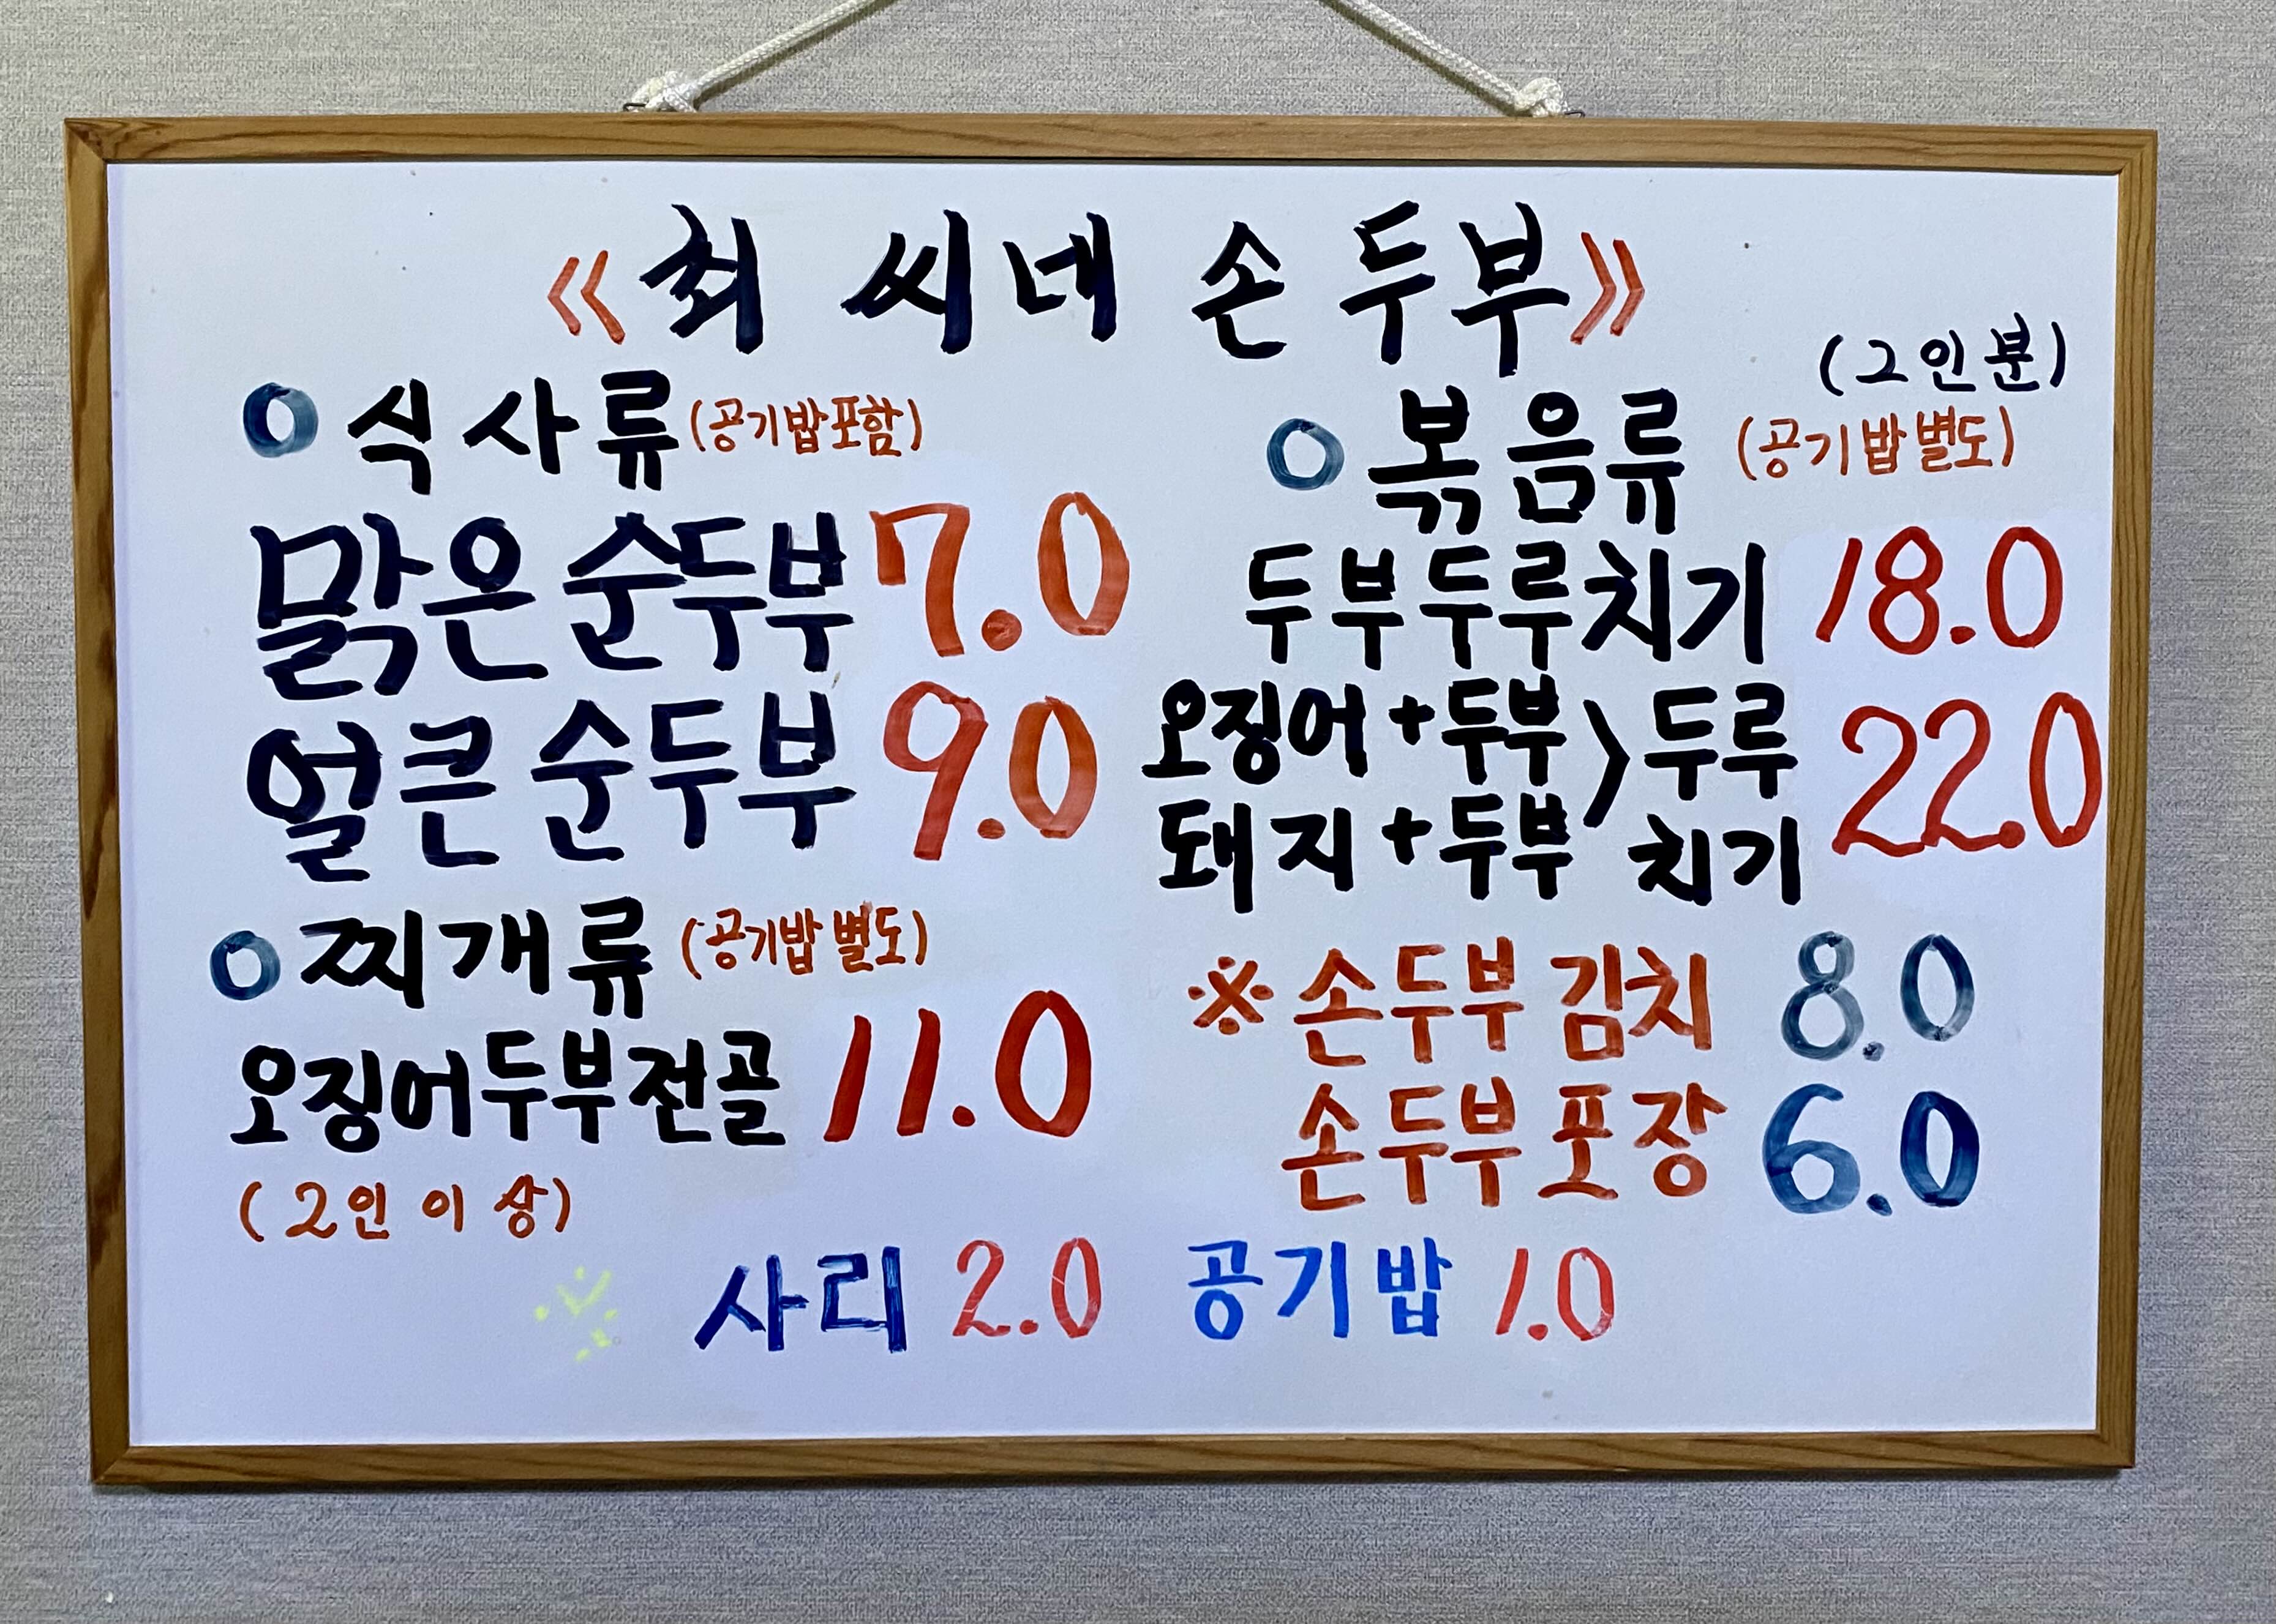 《최 씨네 손두부》
○ 식사류 (공기밥포함)
맑은 순두부 7.0
얼큰 순두부 9.0
○ 찌개류 (공기밥 별도)
오징어두부전골 11.0
(2인 이상)
(2인분)
○ 볶음류 (공기밥 별도)
두부두루치기 18.0
오징어+두부 > 두루
돼지+두부 치기 22.0
※ 손두부 김치 8.0
손두부 포장 6.0
사리 2.0 공기밥 1.0